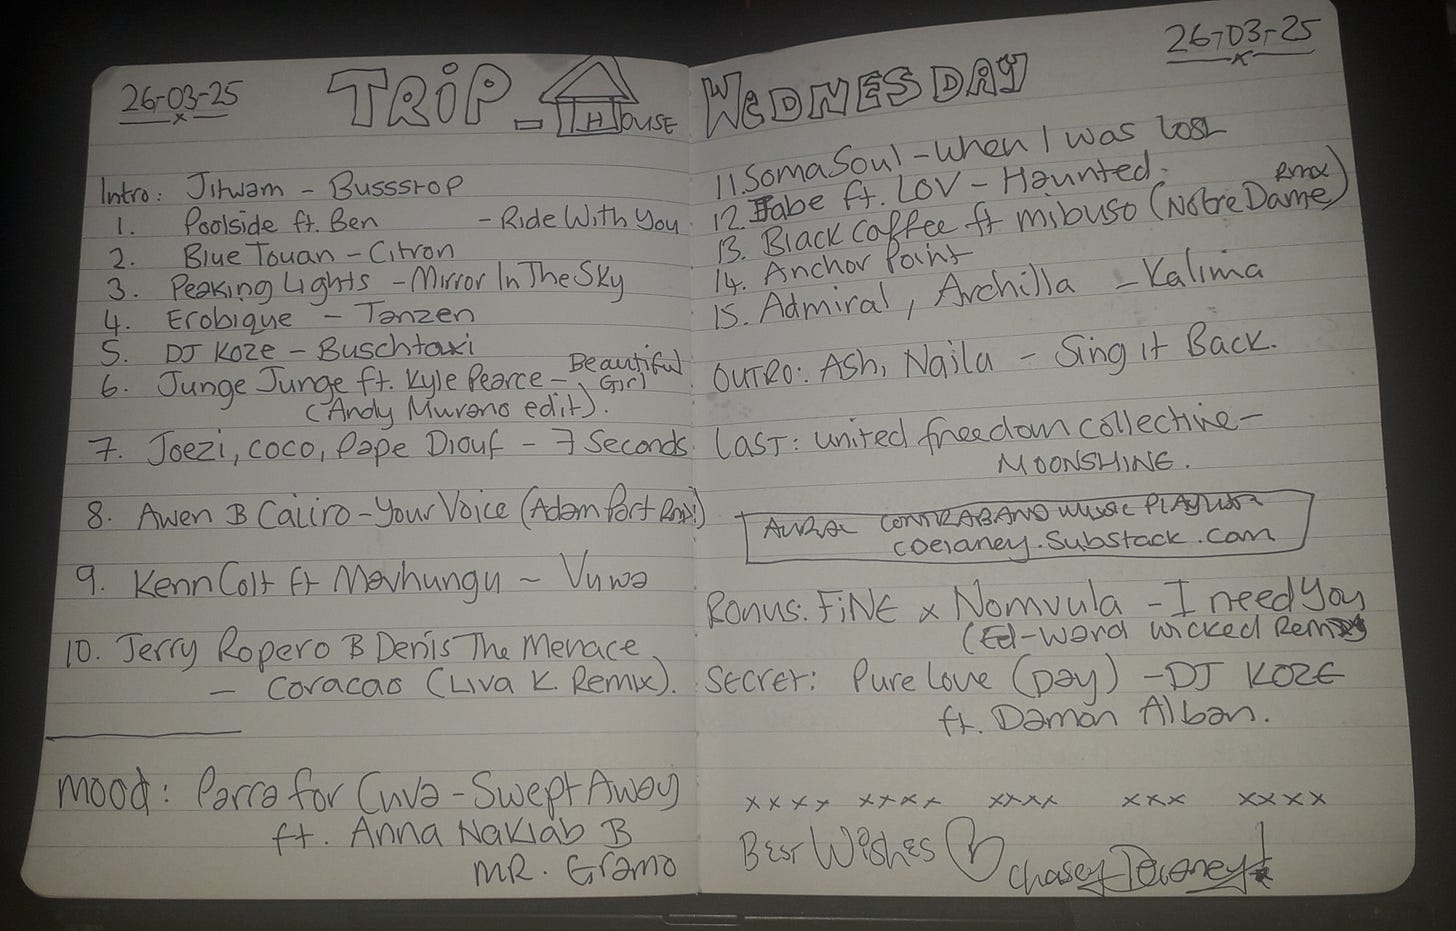 26-03-25
TRIP-HOUSE
Intro: Jitwam - Bussstop
1. Poolside ft. Ben - Ride With You
2. Blue Touan - Citron
3. Peaking Lights - Mirror In The Sky
4. Erobique - Tanzen
5. DJ Koze - Buschtaxi
6. Junge Junge ft. Kyle Pearce - Beautiful Girl
(Andy Murano edit).
7. Joezi, coco, Pape Diouf - 7 Seconds
8. Awen B Caiiro - Your Voice (Adam Port Rmx!)
9. Kenn Colt ft Mavhungu ~ Vuwa
10. Jerry Ropero B Denis The Menace
- Coracao (Liva K. Remix).
Mood: Parra for Cuva - Swept Away
ft. Anna Naklab B
MR. Gramo
26-03-25
WEDNESDAY
11. Soma Soul - When I was lost
12. Fabe ft. LOV - Haunted.
13. Black Coffee ft mibuso (Notre Dame Rmx)
14. Anchor Point
15. Admiral, Archilla - Kalima
OUTRO: Ash, Naila - Sing it Back.
LAST: united freedom collective -
MOONSHINE.
AURAL CONTRABAND MUSIC PLAYLIST
.Substack.com
Bonus: FiNE x Nomvula - I need You
(Ed-Ward wicked Remix
Secret: Pure Love (Day) - DJ KOZE
ft. Damon Alban.
xxxx xxxx xxxx xxx xxxx
Best Wishes
Chasey